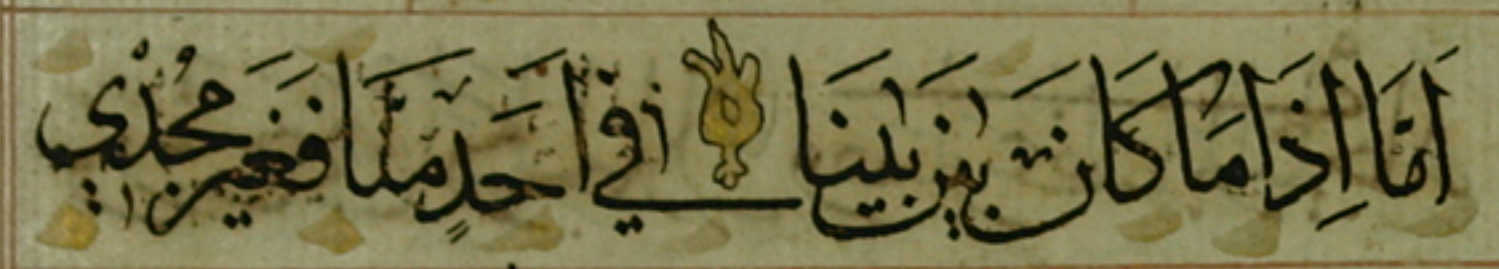 اَمَّا اِذَا مَا كَانَ بَيْنَ بَيْنَا فِي اَحَدٍ مِنَّا فَغَيْرُ مُجْدِي